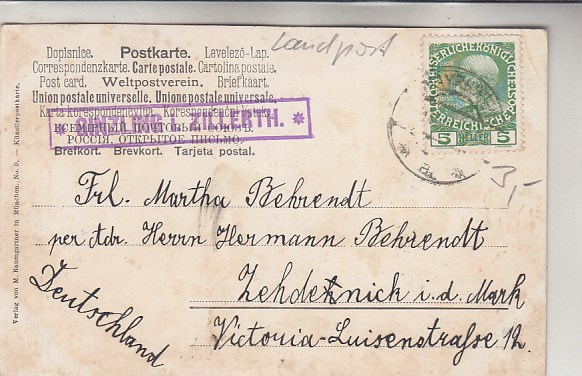 Landpost
Dopisnice. Postkarte. Levelező-Lap.
Correspondenzkarte. Carte postale. Cartolina postale.
Post card. Weltpostverein. Briefkaart.
Union postale universelle. Unione postale universale.
Karta korespondencyjna. Korespondenční lístek.
ВСЕМІРНЫЙ ПОЧТОВЫЙ СОЮЗЪ.
РОССІЯ. ОТКРЫТОЕ ПИСЬМО.
Brefkort. Brevkort. Tarjeta postal.
* GINZLING I. ZILLERTH. *
KAISERLICHEKÖNIGLICHE
ÖSTERREICHISCHE
5 HELLER 5
* a *
3,-
Frl. Martha Behrendt
per Adr. Herrn Hermann Behrendt
Zehdenick i. d. Mark
Victoria-Luisenstraſse 12.
Deutschland
Verlag von M. Baumgartner in München, No. 9. — Künstlerpostkarte.